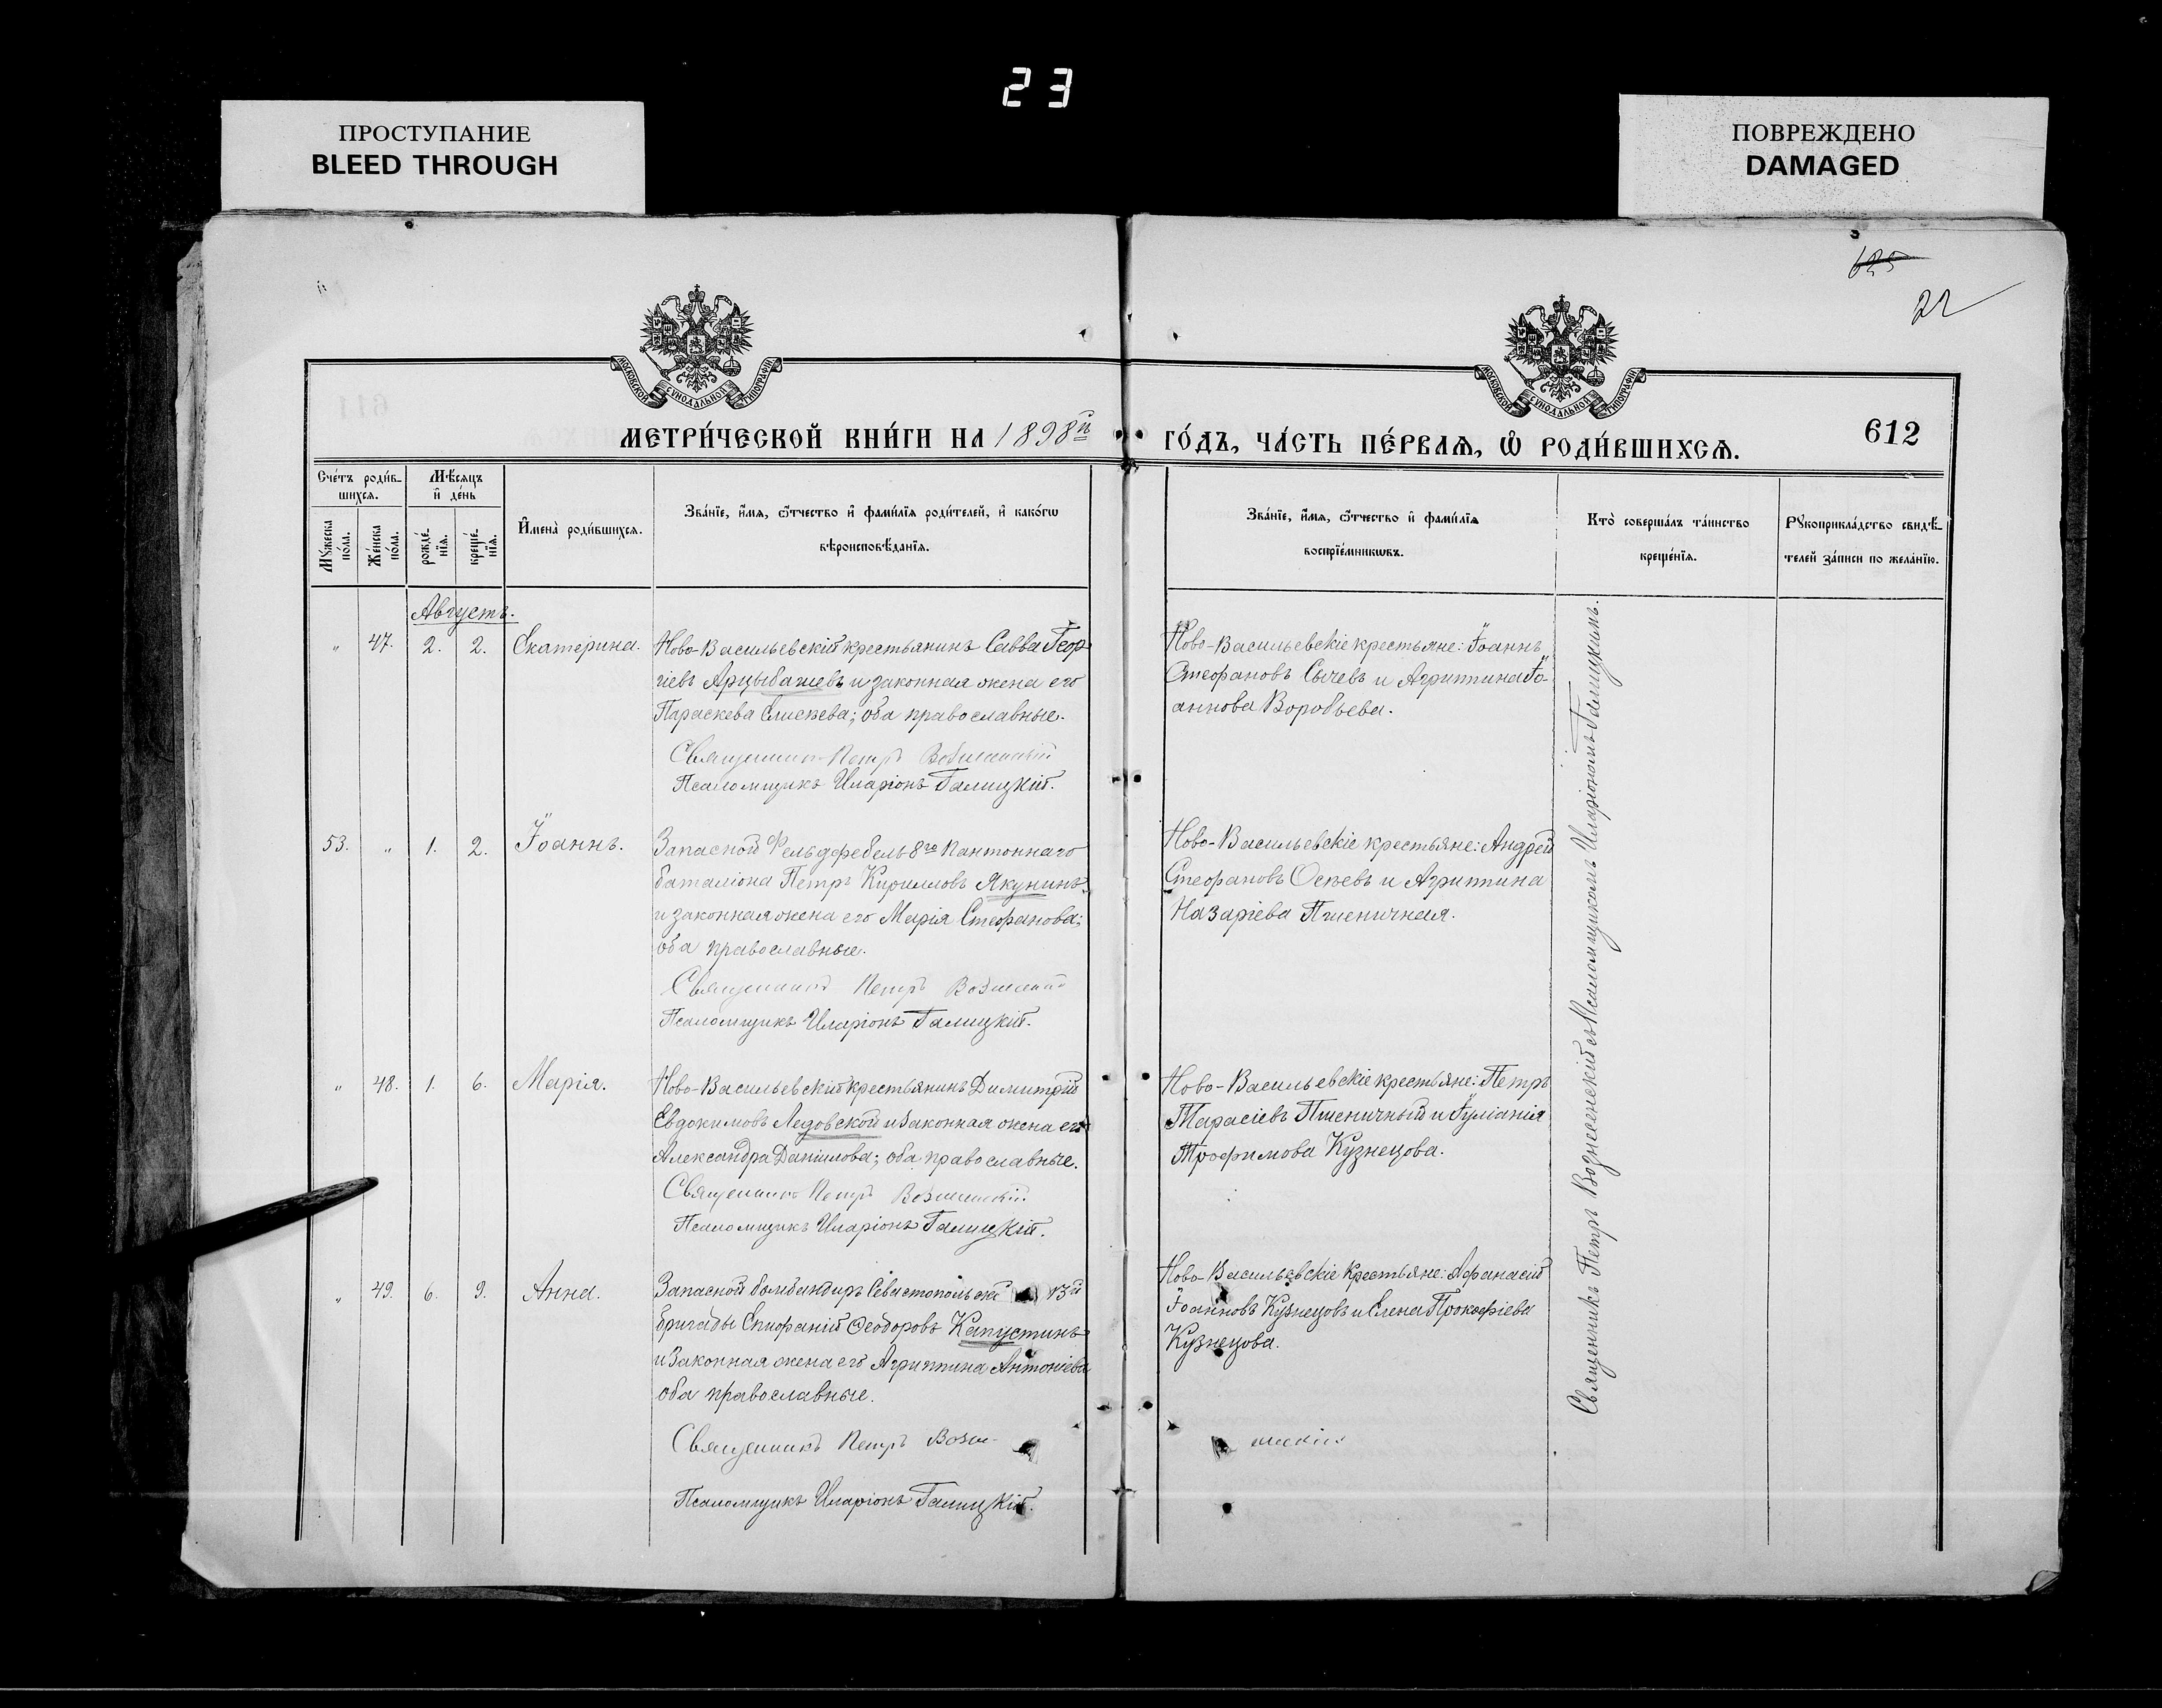 23
ПРОСТУПАНИЕ
BLEED THROUGH
ПОВРЕЖДЕНО
DAMAGED
625
22
МОСКОВСКОЙ СѴНОДАЛЬНОЙ ТИПОГРАФІИ
МОСКОВСКОЙ СѴНОДАЛЬНОЙ ТИПОГРАФІИ
МЕТРИ́ЧЕСКОЙ КНИ́ГИ НА 1898й
ГО́ДЪ, ЧА́СТЬ ПЕ́РВАѦ, Ѡ҆ РОДИ́ВШИХСѦ.
612
Сче́тъ роди́в-
шихсѧ.
Мꙋ́жеска
по́ла.
Же́нска
по́ла.
Мѣ́сѧцъ
и҆ де́нь
рожде́-
нїѧ.
креще́-
нїѧ.
И҆мена̀ роди́вшихсѧ.
Зва́нїе, и҆́мѧ, ѻ҆́тчество и҆ фами́лїѧ роди́телей, и҆ како́гѡ
вѣроисповѣ́данїѧ.
Зва́нїе, и҆́мѧ, ѻ҆́тчество и҆ фами́лїѧ
воспрїе́мникѡвъ.
Кто̀ соверша́лъ та́инство
креще́нїѧ.
Рꙋкоприкла́дство свидѣ́-
телей за́писи по жела́нїю.
Августъ.
" 47. 2. 2. Екатерина.
Ново-Васильевскій крестьянинъ Савва Геор-
гіевъ Арцыбашевъ и законная жена его
Параскева Елисѣева; оба православные.
Священникъ Петръ Вознесенскій
Псаломщикъ Иларіонъ Галицкій.
Ново-Васильевскіе крестьяне: Іоаннъ
Стефановъ Сычевъ и Агриппина Іо-
аннова Воробьева.
53. " 1. 2. Іоаннъ.
Запасной Фельдфебель 8го Понтоннаго
баталіона Петръ Кирилловъ Якунинъ
и законная жена его Марія Стефанова;
оба православные.
Священникъ Петръ Вознесенскій
Псаломщикъ Иларіонъ Галицкій.
Ново-Васильевскіе крестьяне: Андрей
Стефановъ Осѣевъ и Агриппина
Назаріева Пшеничная.
" 48. 1. 6. Марія.
Ново-Васильевскій крестьянинъ Димитрій
Евдокимовъ Ледовской и законная жена его
Александра Даніилова; оба православные.
Священникъ Петръ Вознесенскій
Псаломщикъ Иларіонъ Галицкій.
Ново-Васильевскіе крестьяне: Петръ
Тарасіевъ Пшеничный и Іуліанія
Трофимова Кузнецова.
" 49. 6. 9. Анна.
Запасной бомбандиръ Севастопольской 13й
бригады Епифаній Ѳеодоровъ Капустинъ
и законная жена его Агриппина Антоніева
оба православные.
Священникъ Петръ Возне-
сенскій
Псаломщикъ Иларіонъ Галицкій.
Ново-Васильевскіе крестьяне: Афанасій
Іоанновъ Кузнецовъ и Елена Прокофіева
Кузнецова.
Священникъ Петръ Вознесенскій съ Псаломщикомъ Иларіономъ Галицкимъ.